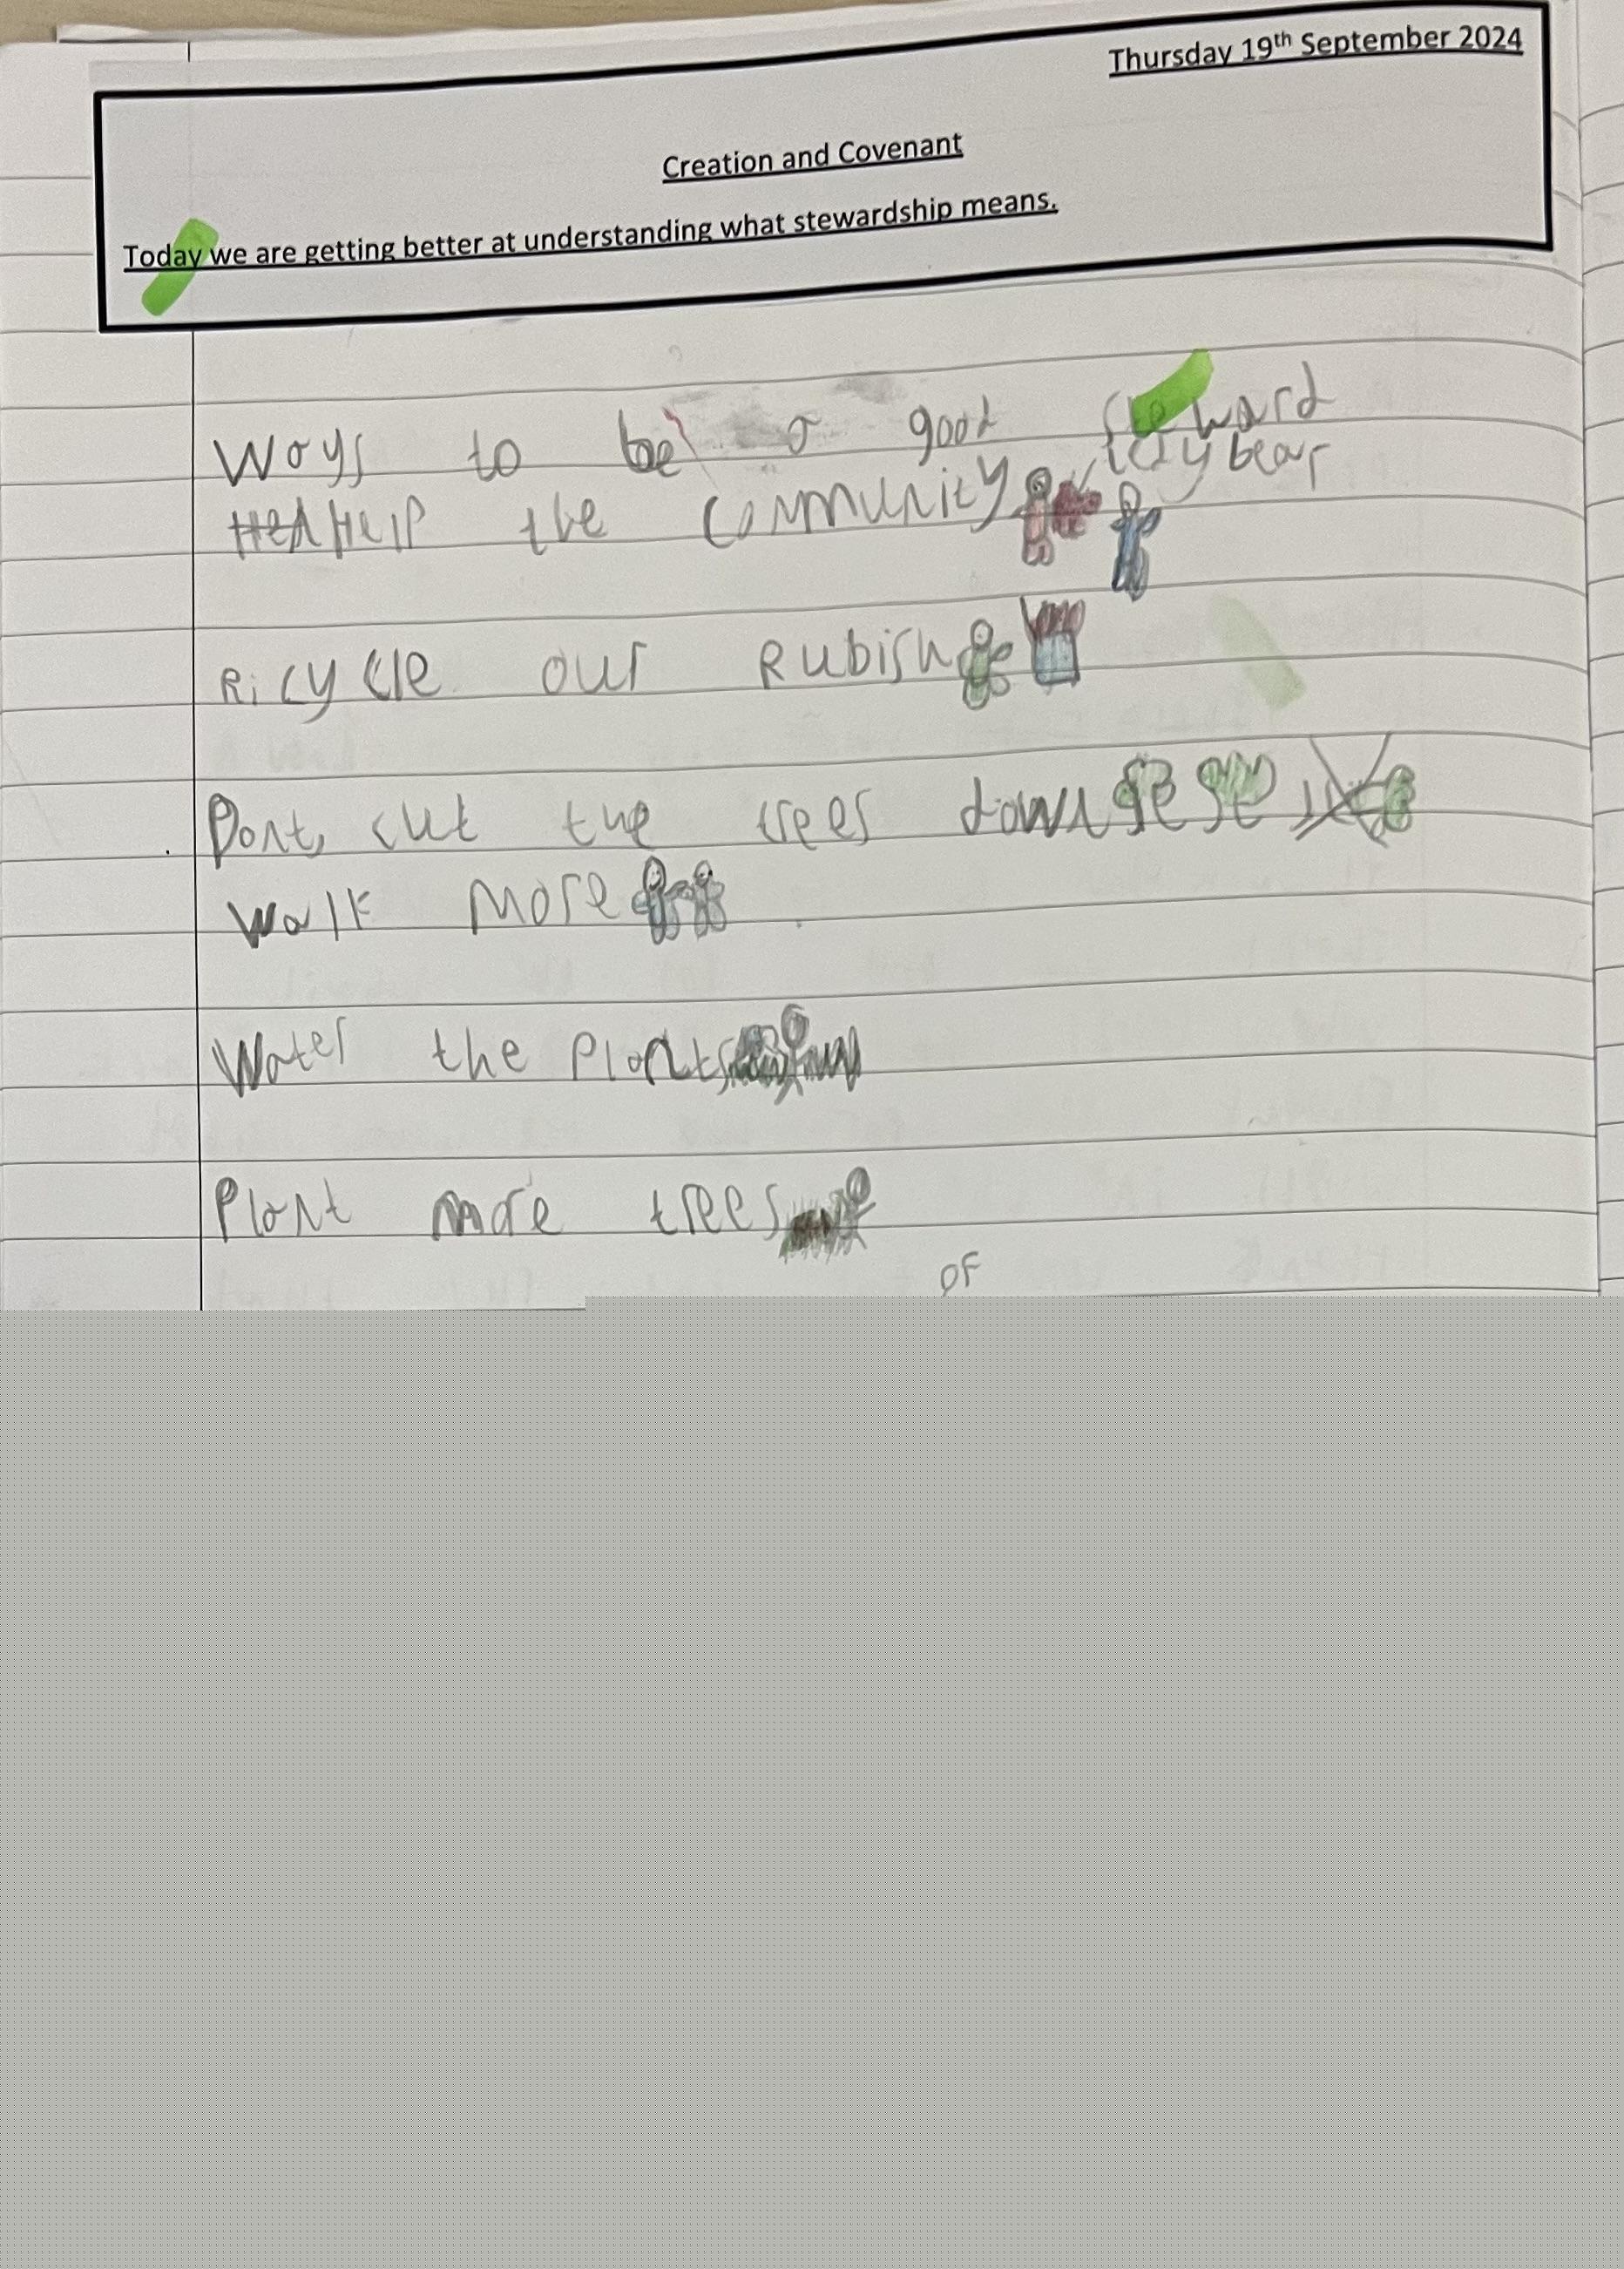 Thursday 19th September 2024
Creation and Covenant
Today we are getting better at understanding what stewardship means.
Ways to be a good steward
teddy bear
Help the community
Ricycle our Rubish
Dont, cut the trees down
Walk more
Water the Plants
Plant more trees
OF